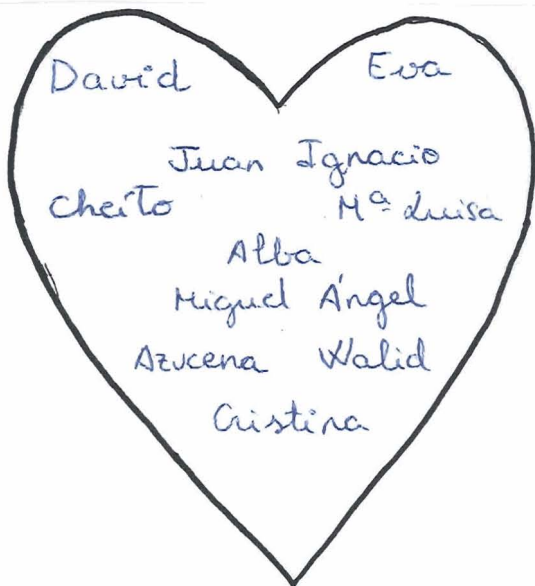 David Eva
Juan Ignacio
Cheíto Mª Luisa
Alba
Miguel Ángel
Azucena Walid
Cristina